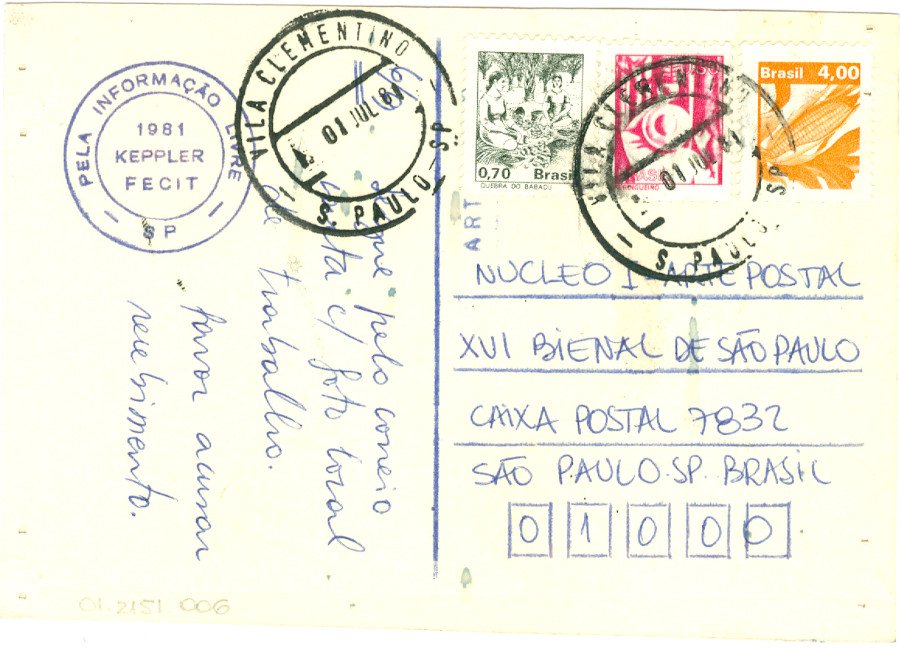 PELA INFORMAÇÃO LIVRE
1981
KEPPLER
FECIT
SP
VILA CLEMENTINO
01 JUL 81
S. PAULO - SP
segue pelo correio
carta c/ foto
de trabalho.
favor acusar
recebimento.
0,70 Brasil
QUEBRA DO BABAÇU
Brasil 4,00
VILA CLEMENTINO
01 JUL 81
S. PAULO SP
ART
NUCLEO I - ARTE POSTAL
XVI BIENAL DE SÃO PAULO
CAIXA POSTAL 7832
SÃO PAULO.SP. BRASIL
0 1 0 0 0
01.2151.006